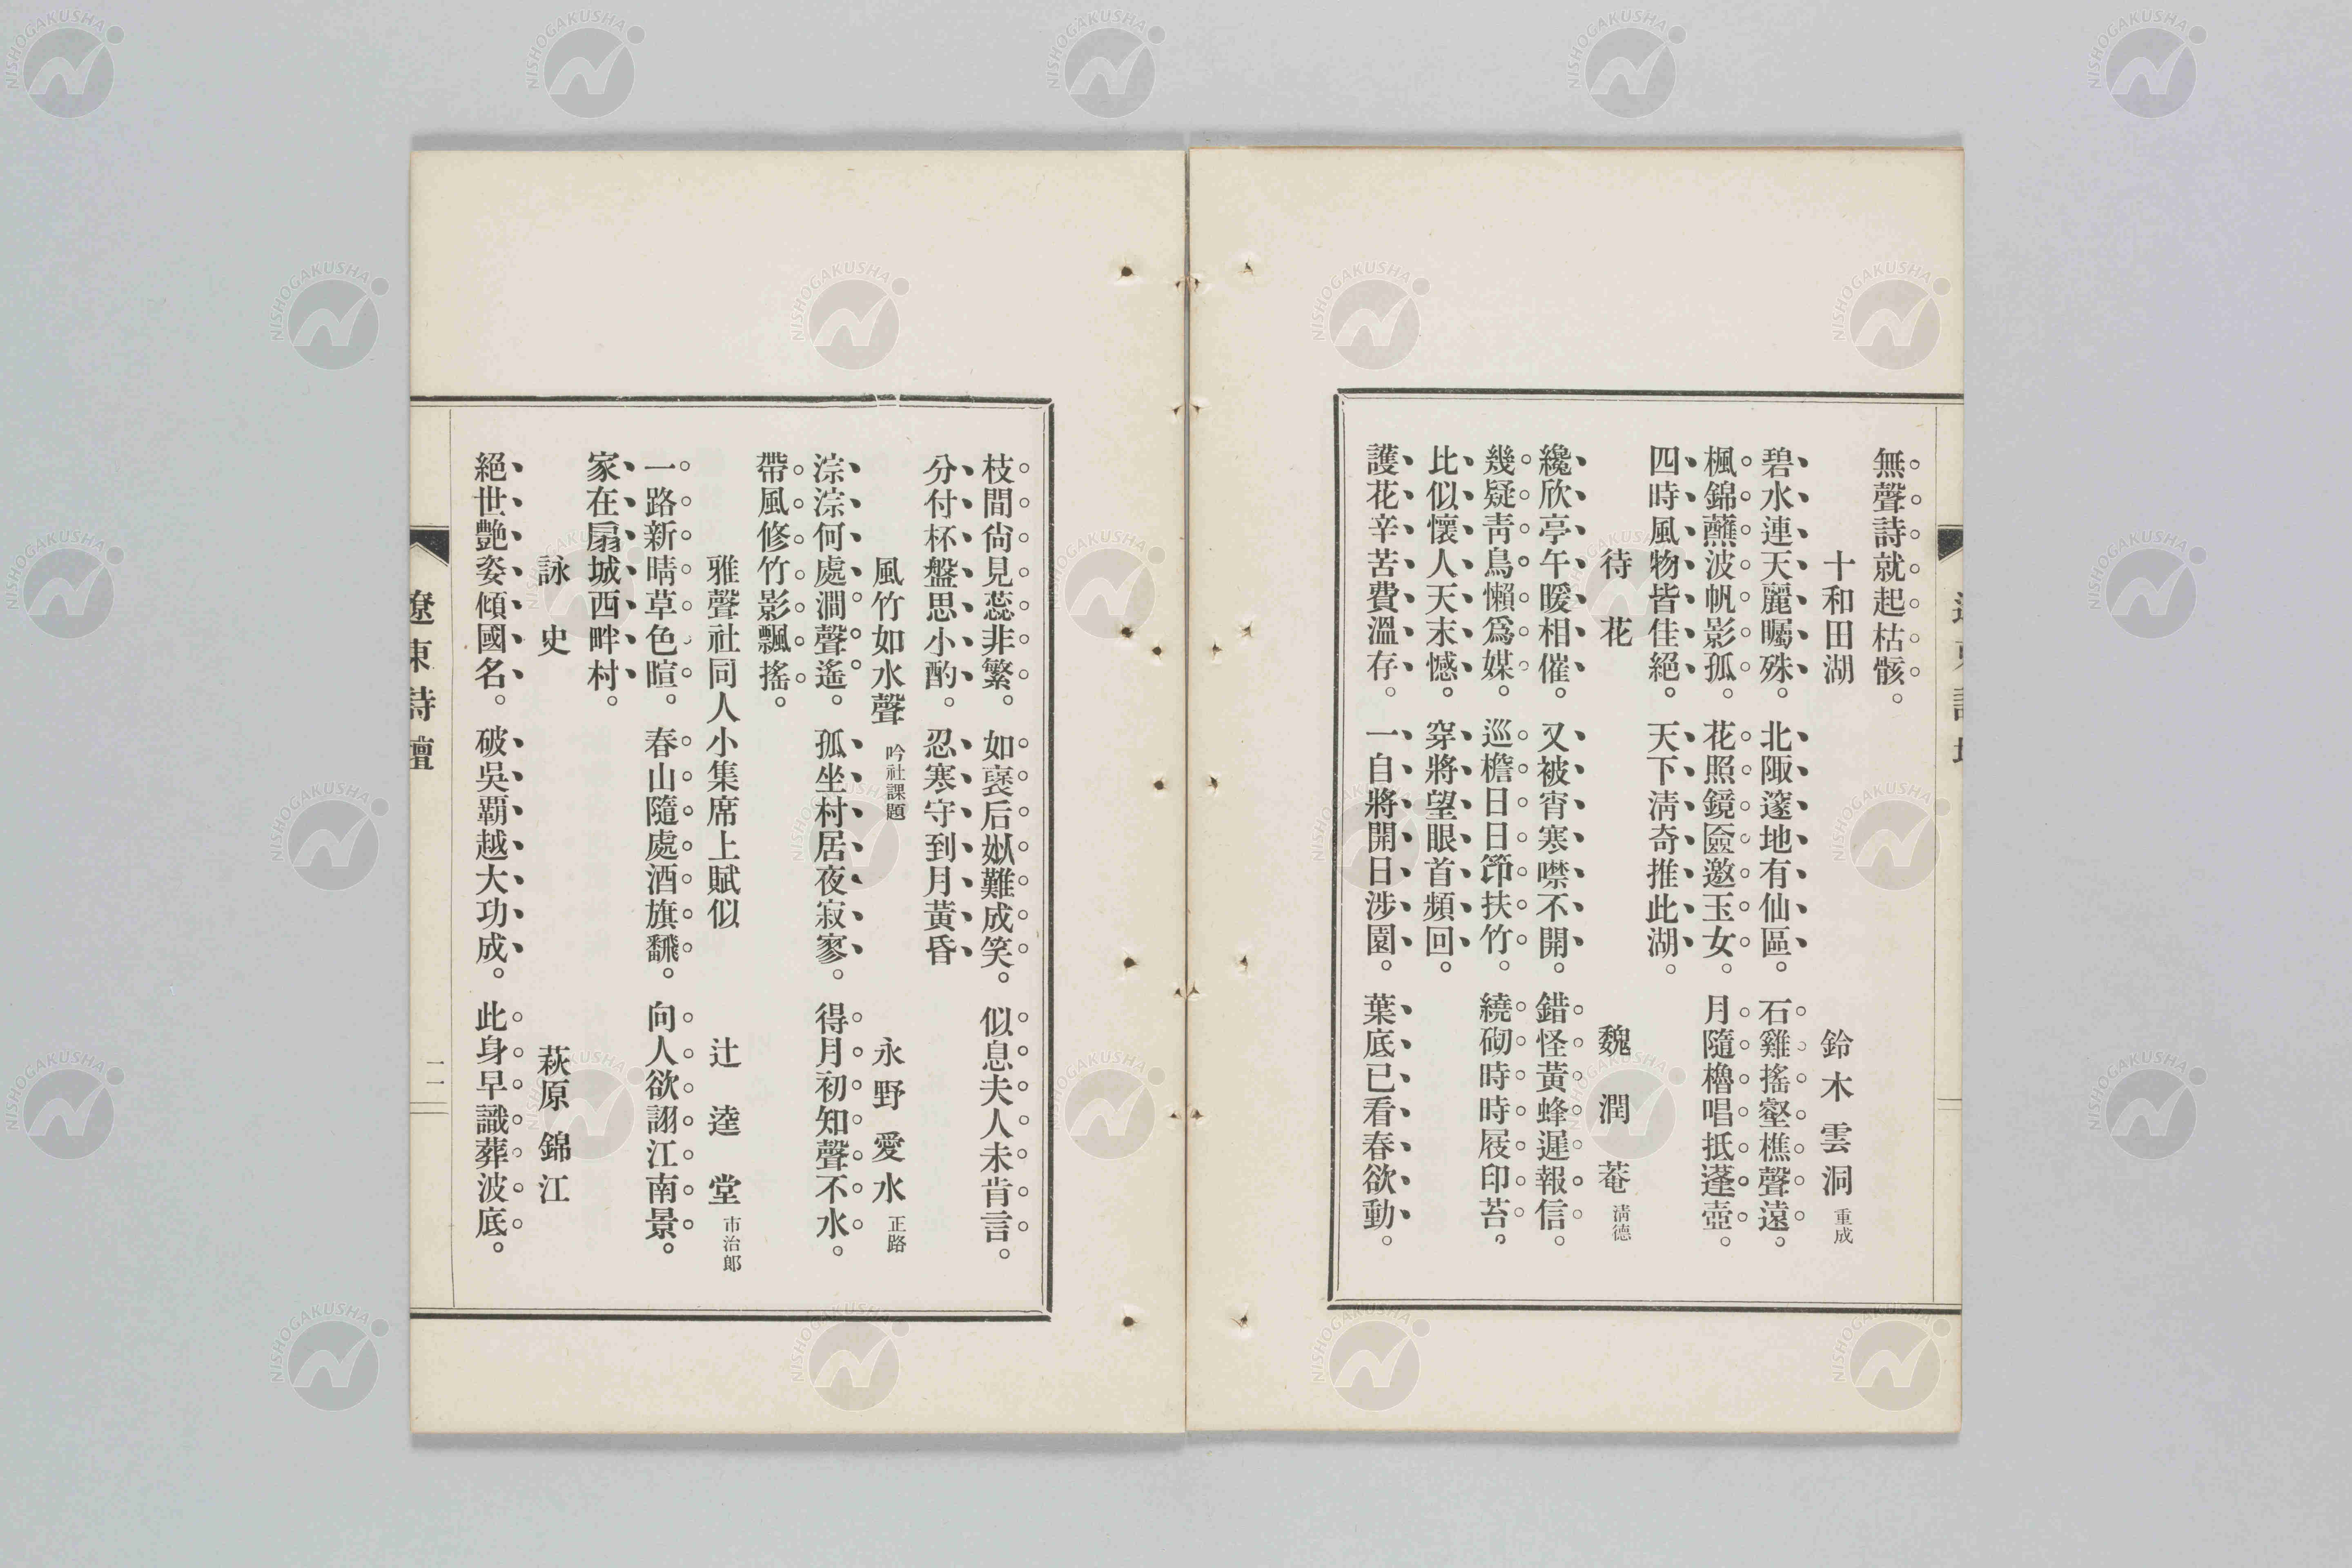 無聲詩就起枯骸。
十和田湖 鈴木雲洞 重成
碧水連天麗矚殊。北陬邃地有仙區。石雞搖壑樵聲遠。
楓錦蘸波帆影孤。花照鏡匳邀玉女。月隨櫓唱抵蓬壺。
四時風物皆佳絕。天下淸奇推此湖。
待花 魏潤菴 淸德
纔欣亭午暖相催。又被宵寒噤不開。錯怪黃蜂遲報信。
幾疑靑鳥懶爲媒。巡檐日日笻扶竹。繞砌時時屐印苔。
比似懷人天末憾。穿將望眼首頻回。
護花辛苦費溫存。一自將開日涉園。葉底已看春欲動。
枝間尙見蕊非繁。如襃后姒難成笑。似息夫人未肯言。
分付杯盤思小酌。忍寒守到月黃昏
風竹如水聲 吟社課題 永野愛水 正路
淙淙何處澗聲遙。孤坐村居夜寂寥。得月初知聲不水。
帶風修竹影飄搖。
雅聲社同人小集席上賦似 辻逵堂 市治郞
一路新晴草色暄。春山隨處酒旗飜。向人欲詡江南景。
家在扇城西畔村。
詠史 萩原錦江
絕世艷姿傾國名。破吳覇越大功成。此身早識葬波底。
遼東詩壇
二一
NISHOGAKUSHA